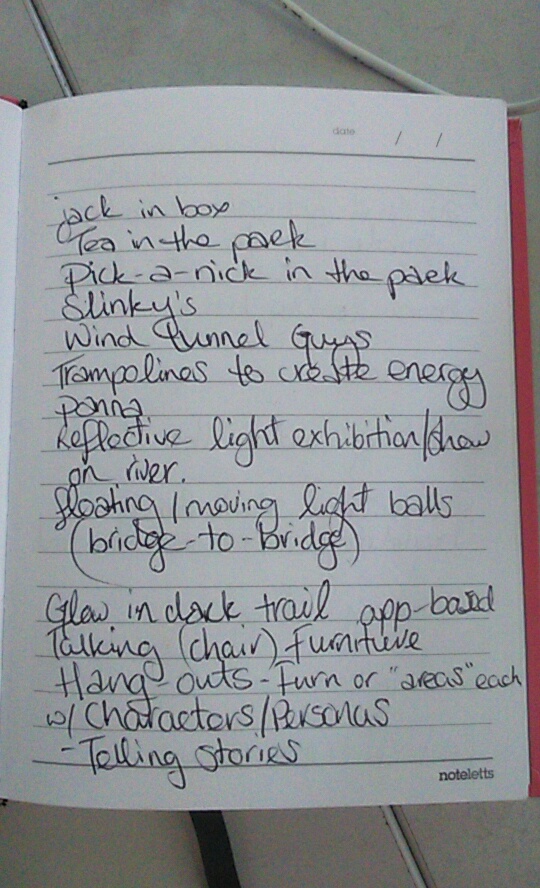 date / /
jack in box
Tea in the park
Pick-a-nick in the park
Slinky's
Wind tunnel Guys
Trampolines to create energy
panna
Reflective light exhibition/show
on river.
floating/moving light balls
(bridge-to-bridge)
Glow in dark trail app-based
Talking (chair) furniture
Hang-outs-Furn or "areas" each
w/ Characters/Personas
-Telling stories
noteletts